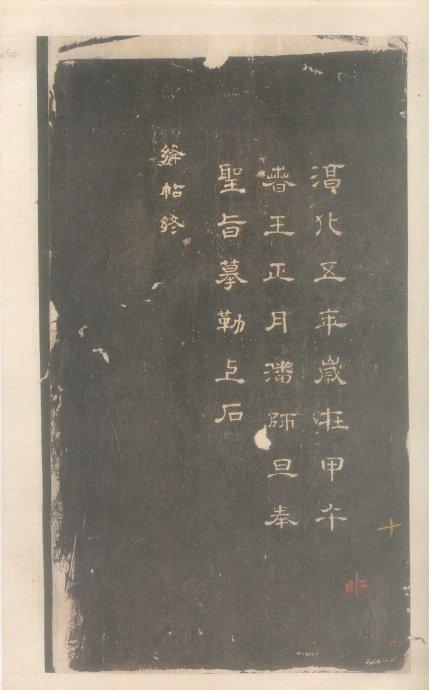 淳化五年歲在甲午
春王正月潘師旦奉
聖旨摹勒上石
絳帖終
十